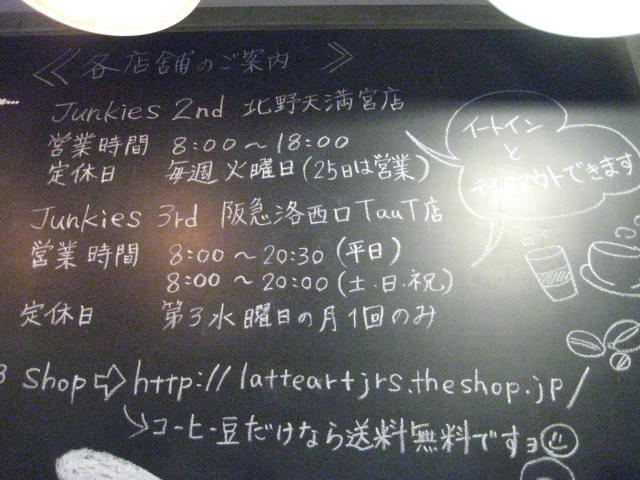 ≪各店舗のご案内 ≫
Junkies 2nd 北野天満宮店
営業時間 8:00~18:00
定休日 毎週火曜日(25日は営業)
イートイン
と
テイクアウトできます
Junkies 3rd 阪急洛西口TauT店
営業時間 8:00~20:30(平日)
8:00~20:00(土・日・祝)
定休日 第3水曜日の月1回のみ
Shop⇨http://latteartjrs.theshop.jp/
↘コーヒー豆だけなら送料無料ですョ☺